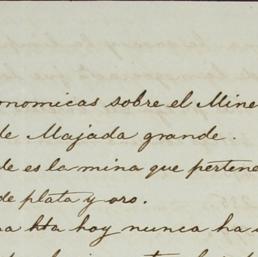 onomicas sobre el Mine
de Majada grande.
de es la mina que pertene
de plata y oro.
hta hoy nunca ha